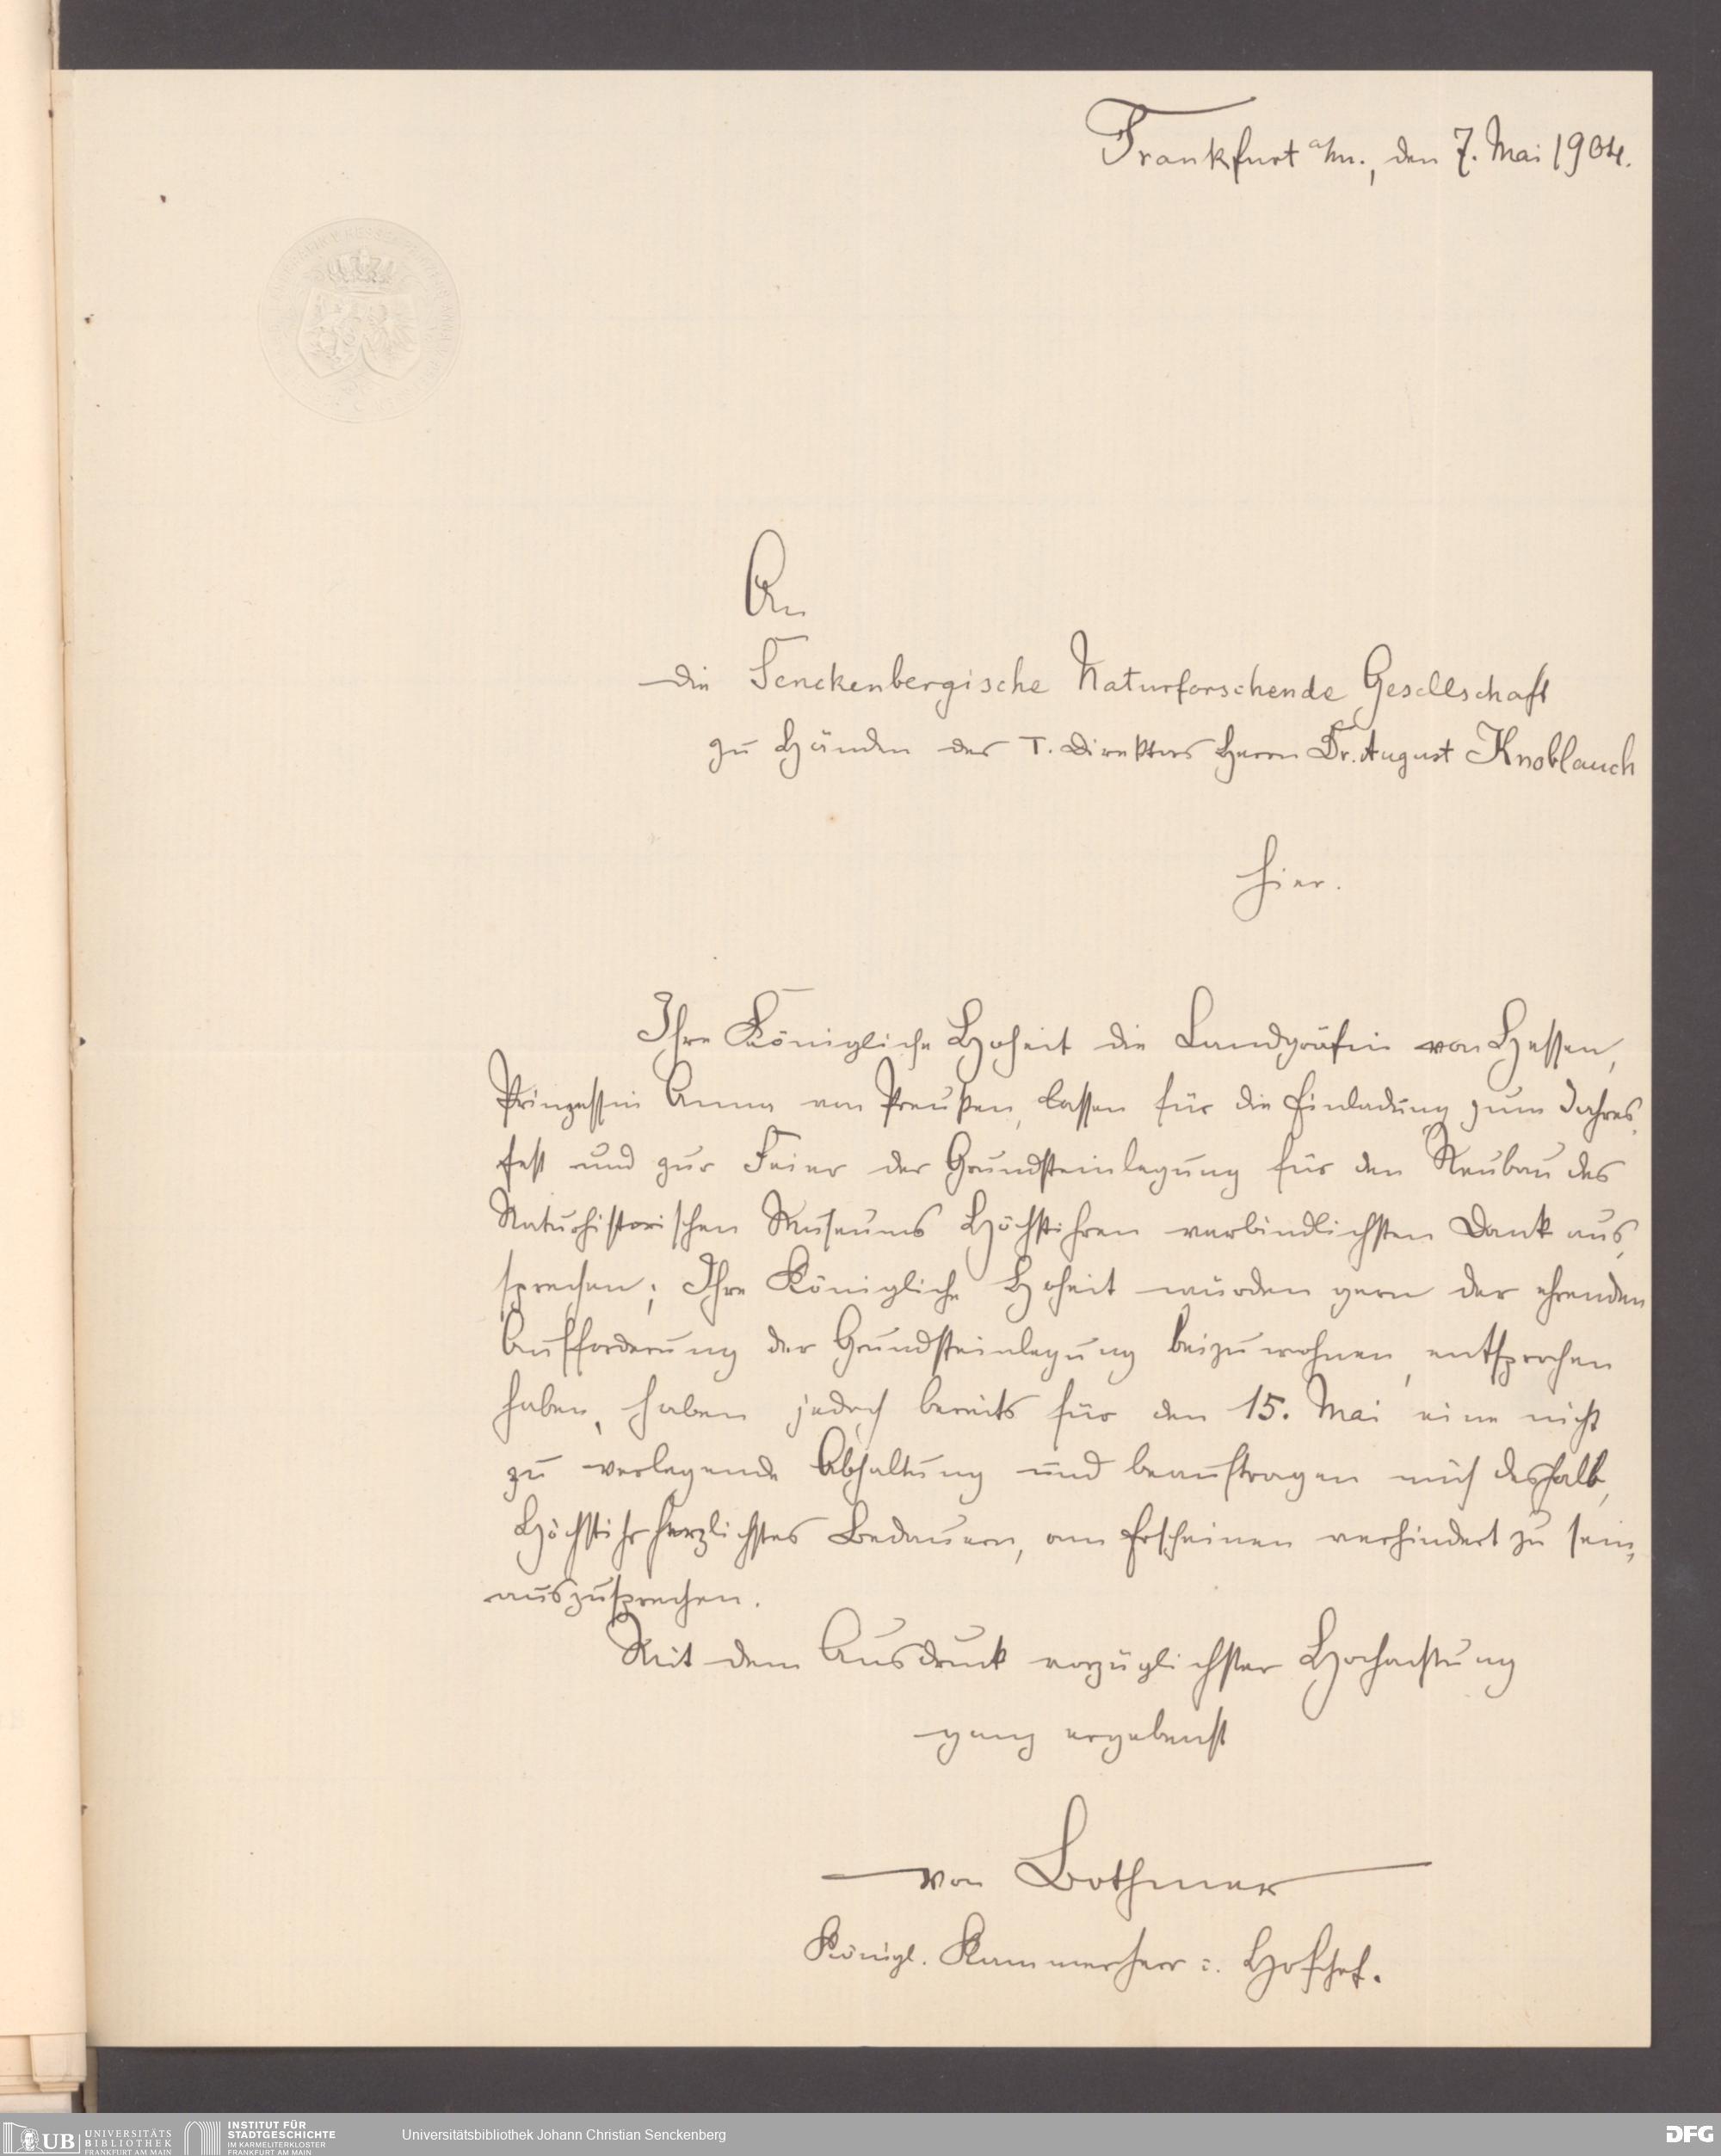 Frankfurt a/m., den 7. Mai 1904.
An
die Senckenbergische Naturforschende Gesellschaft
zu Händen des I. Direktors Herrn Dr. August Knoblauch
hier.
Ihre Königliche Hoheit die Landgräfin von Hessen,
Prinzessin Anna von Preußen, lassen für die Einladung zum Jahres-
fest und zur Feier der Grundsteinlegung für den Neubau des
Naturhistorischen Museums Höchstihren verbindlichsten Dank aus-
sprechen; Ihre Königliche Hoheit würden gern der ehrenden
Aufforderung der Grundsteinlegung beizuwohnen, entsprochen
haben, haben jedoch bereits für den 15. Mai eine nicht
zu verlegende Abhaltung und beauftragen mich deshalb,
Höchstihr herzlichstes Bedauern, am Erscheinen verhindert zu sein,
auszusprechen.
Mit dem Ausdruck vorzüglichster Hochachtung
ganz ergebenst
von Bothmer
Königl. Kammerherr u. Hofchef.
UB UNIVERSITÄTS
BIBLIOTHEK
FRANKFURT AM MAIN
INSTITUT FÜR
STADTGESCHICHTE
IM KARMELITERKLOSTER
FRANKFURT AM MAIN
Universitätsbibliothek Johann Christian Senckenberg
DFG